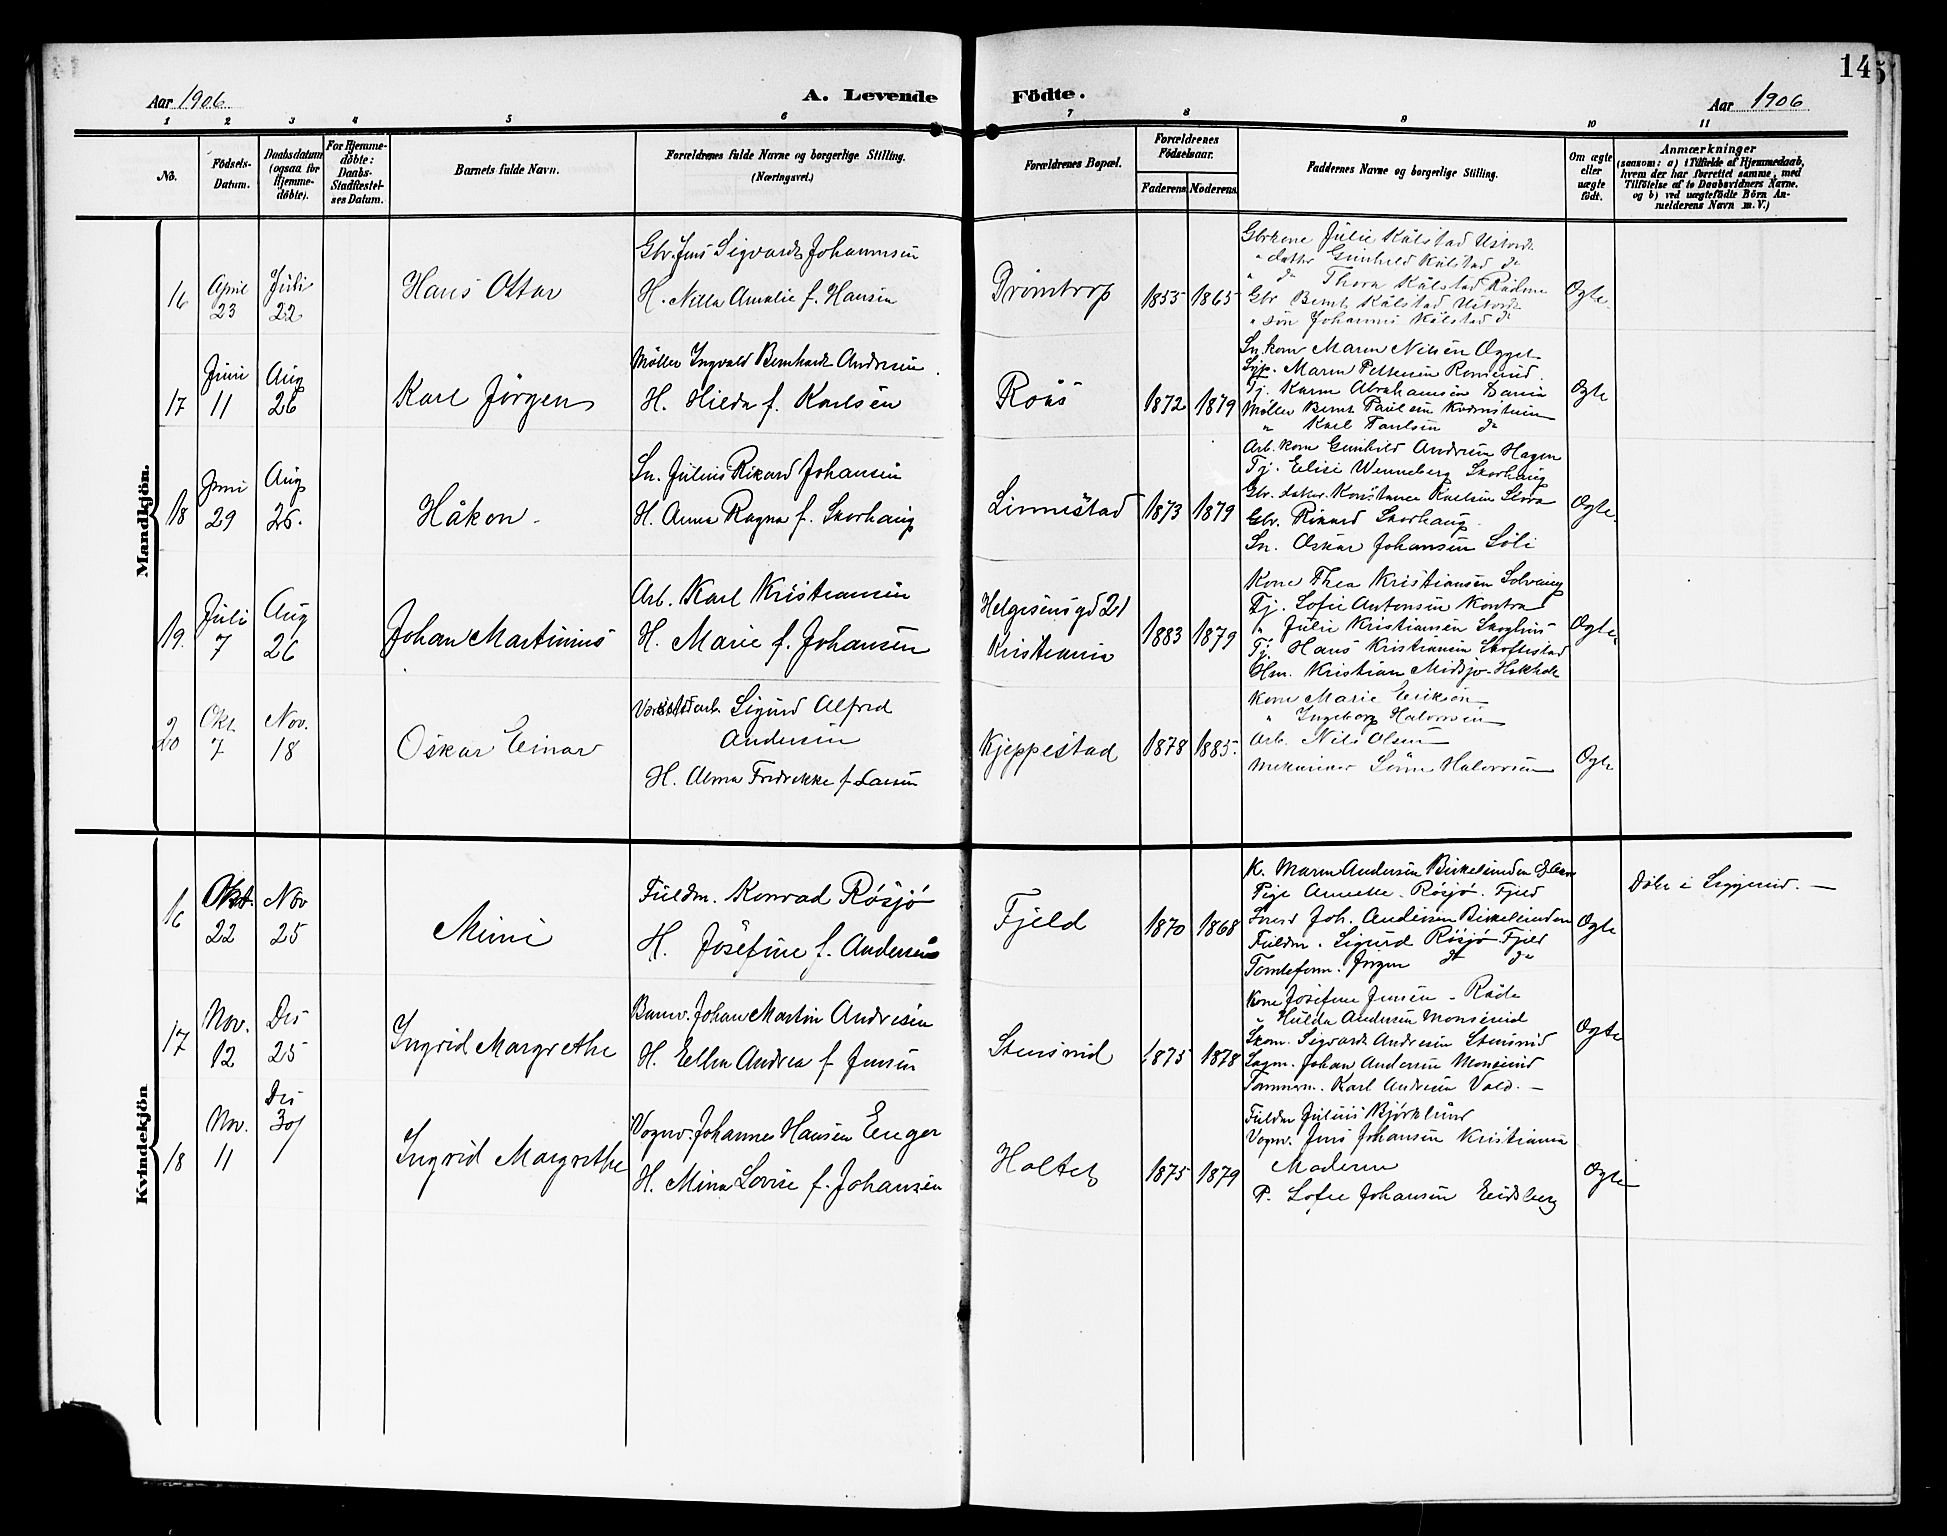 14
Aar 1906
A. Levende Födte.
Aar 1906
1 2 3 4 5 6 7 8 9 10 11
No.
Födsels-Datum.
Daabsdatum (ogsaa for Hjemmedöbte).
For Hjemmedöbte: Daabs-Stadfestelses Datum.
Barnets fulde Navn.
Forældrenes fulde Navne og borgerlige Stilling. (Næringsvei.)
Forældrenes Bopæl.
Forældrenes Födselsaar.
Faderens Moderens
Faddernes Navne og borgerlige Stilling.
Om ægte eller uægte födt.
Anmærkninger
(saasom: a) i Tilfælde af Hjemmedaab, hvem der har forrettet samme, med Tilföielse af to Daabsvidners Navne, og b) ved uægtefödte Börn Anmelderens Navn m. V.)
Mandkjön.
16 April 23 Juli 22 Hans Ottar
Gbr. Jens Sigvardt Johannesen
H. Nilla Amalie f. Hansen
Drömtorp 1855 1865
Gbrkone Julie Kålstad
" datter Gunhild Kålstad do
" do Thora Kålstad
Gbr Bernt Kålstad
" søn Johannes Kålstad do
Ogte.
17 Juni 11 Aug 26 Karl Jörgen
Møller Ingvald Bernhardt Andresen
H. Hilda f. Karlsen
Roås 1872 1879
Sn. kone Maren Nilsen
Maren Pettersen
Tj. Karen Abrahamsen
Møller Bernt Paulsen
" Karl Paulsen do
Ogte
18 Juni 29 Aug 26. Håkon.
Sn. Julius Rikard Johansen
H. Anna Ragna f. Skorhaug
Linnestad 1873 1879
Arb. kone Gunhild Andresen Hagen
Tj. Elise Wenneberg Skorhaug
Gbr. datter. Konstance Karlsen
Gbr. Rikard Skorhaug
Sn. Oskar Johansen Löli
Ogte.
19. Juli 7 Aug 26 Johan Martinius
Arb. Karl Kristiansen
H. Marie f. Johansen
Helgesens gd 21
Kristiania
1883 1879
Kone Thea Kristiansen Solvang
Tj. Sofie Antonsen Kontra
" Julie Kristiansen
Tj. Hans Kristiansen
Hm. Kristian Midsjø
Ogte
20 Okt. 7 Nov. 18 Oskar Einar
Værkstedarb. Sigurd Alfred
Andersen
H. Alma Fredrikke f. Larsen
Kjeppestad 1878 1885.
Kone Marie Eriksen
" Ingeborg Halvorsen
Arb. Nils Olsen
Mekaniker Halvorsen
Ogte
Kvindekjön
16 Okt. 22 Nov 25 Mimi
Fuldm. Konrad Røsjø
H. Josefine f. Andersen
Fjeld 1870 1868
K. Maren Andersen Birkelunden
Pige Annette Røsjø. Fjeld
Joh. Andersen Birkelunden
Fuldm. Sigurd Røsjø Fjeld
Tomteform. Jörgen do do
Ogte
Döbt i Siggerud.
17 Nov. 12 Des 25 Ingrid Margrethe
Banev. Johan Martin Andresen
H. Ellen Andrea f. Jensen
Stensrud 1875 1878
Kone Josefine Jensen - Råde
" Hulda Andersen Monserud
Skom. Sigvardt Andresen Stensrud
Sagm. Johan Andersen Monserud
Tömmerm. Karl Andresen Vold.
Ogte
18 Nov. 11 Des 30 Ingrid Margrethe
Vognv. Johannes Hansen Enger
H. Mina Lovise f. Johansen
Holtet 1875 1879
Fuldm Julius Bjørklund
Vognv. Jens Johansen Kristiania
Moderen
P. Sofie Johansen Eidsberg
Ogte